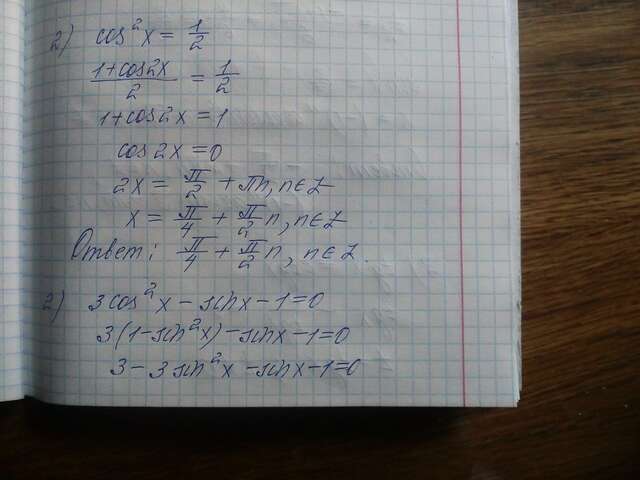 2) cos²x = 1/2
(1+cos2x)/2 = 1/2
1+cos2x = 1
cos2x = 0
2x = π/2 + πn, n∈Z
x = π/4 + π/2 n, n∈Z
Ответ: π/4 + π/2 n, n∈Z.
2) 3cos²x - sinx - 1 = 0
3(1-sin²x) - sinx - 1 = 0
3 - 3sin²x - sinx - 1 = 0